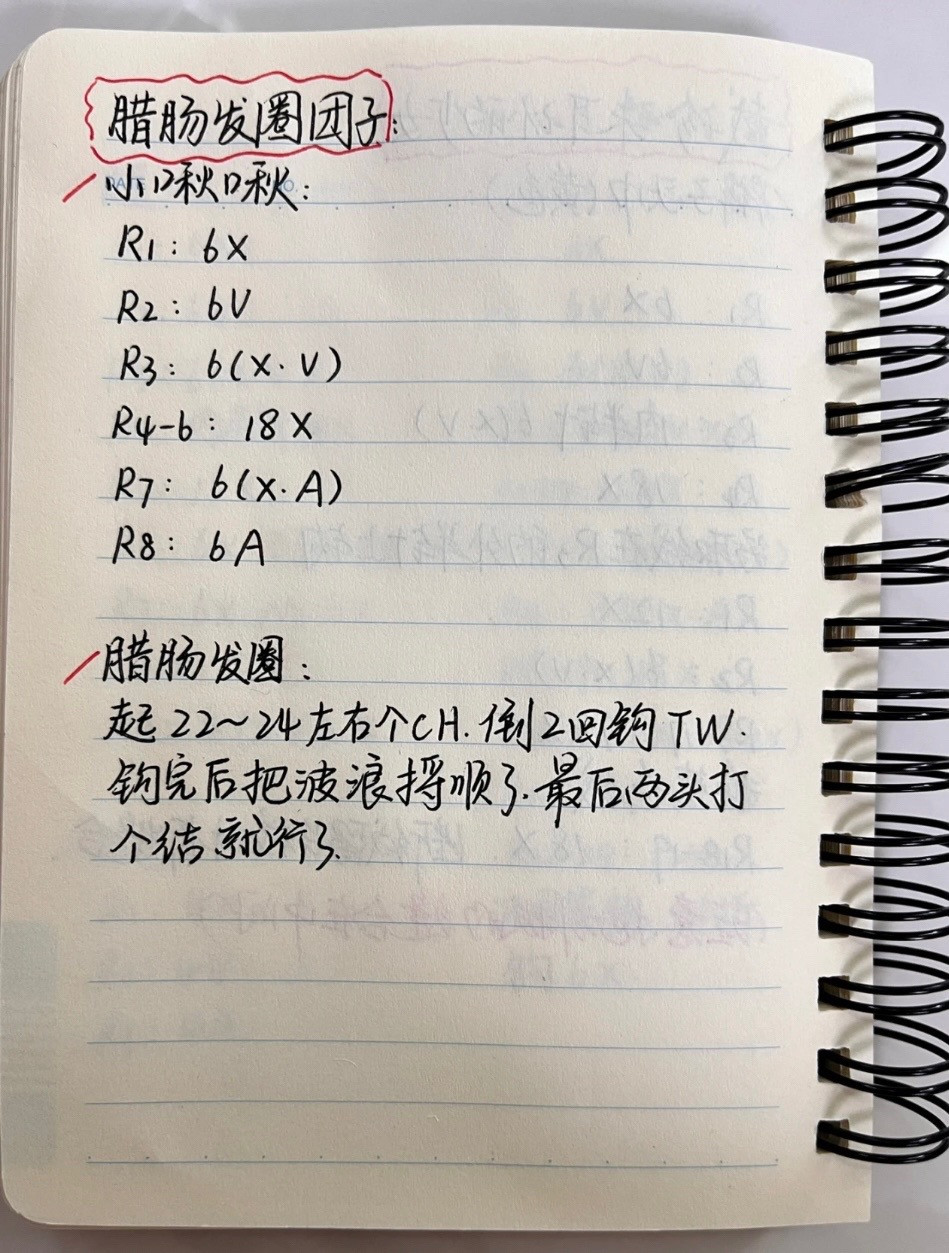 腊肠发圈团子:
小啾啾:
R1: 6X
R2: 6V
R3: 6(X·V)
R4-6: 18X
R7: 6(X·A)
R8: 6A
腊肠发圈:
起22~24左右个CH.倒2回钩TW.
钩完后把波浪捋顺了.最后两头打
个结就行了.